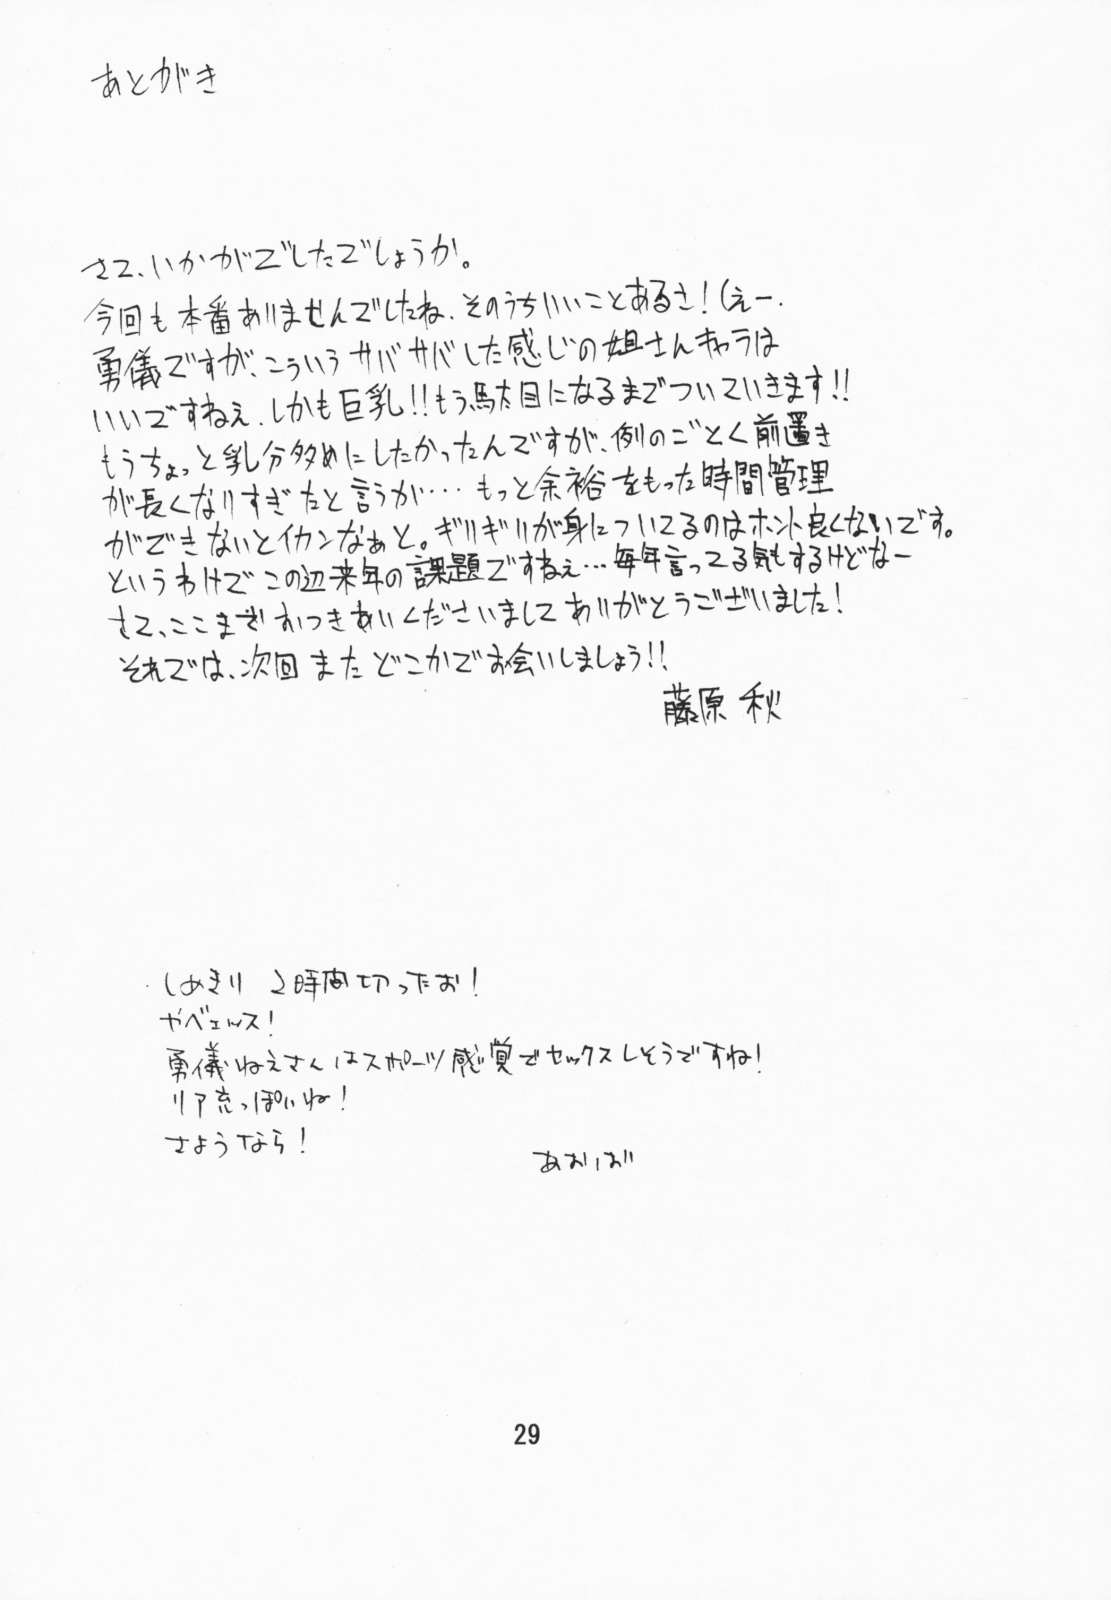 あとがき
さて、いかがでしたでしょうか。
今回も本番ありませんでしたね、そのうちいいことあるさ!(えー.
勇儀ですが、こういうサバサバした感じの姐さんキャラは
いいですねぇ、しかも巨乳!!もう駄目になるまでついていきます!!
もうちょっと乳分多めにしたかったんですが、例のごとく前置き
が長くなりすぎたと言うか…もっと余裕をもった時間管理
ができないとイカンなぁと。ギリギリが身についてるのはホント良くないです。
というわけでこの辺来年の課題ですねぇ…毎年言ってる気もするけどなー
さて、ここまでおつきあいくださいましてありがとうございました!
それでは、次回またどこかでお会いしましょう!!
藤原 秋
しめきり 2時間切ったお!
やべェッス!
勇儀ねえさんはスポーツ感覚でセックスしそうですね!
リア充っぽいね!
さようなら!
あおば
29